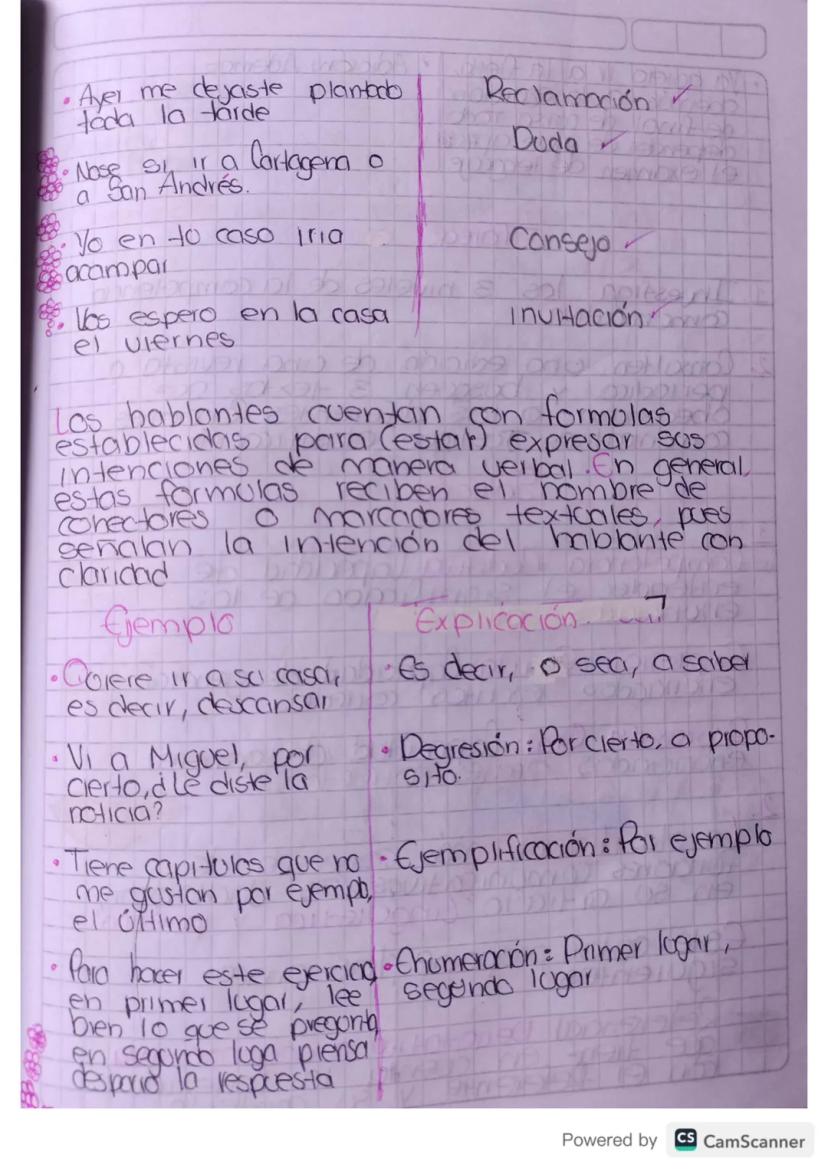 • Ayer me dejaste plantado
toda la tarde
Reclamación ✓
Duda ✓
• Nose si ir a Cartagena o
a San Andrés.
• Yo en to caso iria
acampar
Consejo ✓
• Los espero en la casa
el viernes
Invitación ✓
Los hablantes cuentan con formulas
establecidas para (estar) expresar sus
intenciones de manera verbal. En general,
estas formulas reciben el nombre de
conectores o marcadores textuales, pues
señalan la intención del hablante con
claridad
Ejemplo
Explicación
• Quiere ir a su casa,
es decir, descansar
• Es decir, o sea, a saber
• Vi a Miguel, por
cierto, ¿Le diste la
noticia?
• Degresión: Por cierto, a propo-
sito.
• Tiene capitulos que no
me gustan por ejempo,
el último
• Ejemplificación: Por ejemplo
• Para hacer este ejercicio
en primer lugar, lee
bien lo que se pregonta,
en segundo luga piensa
despacio la respuesta
• Enumeración: Primer lugar,
segundo lugar
Powered by CS CamScanner